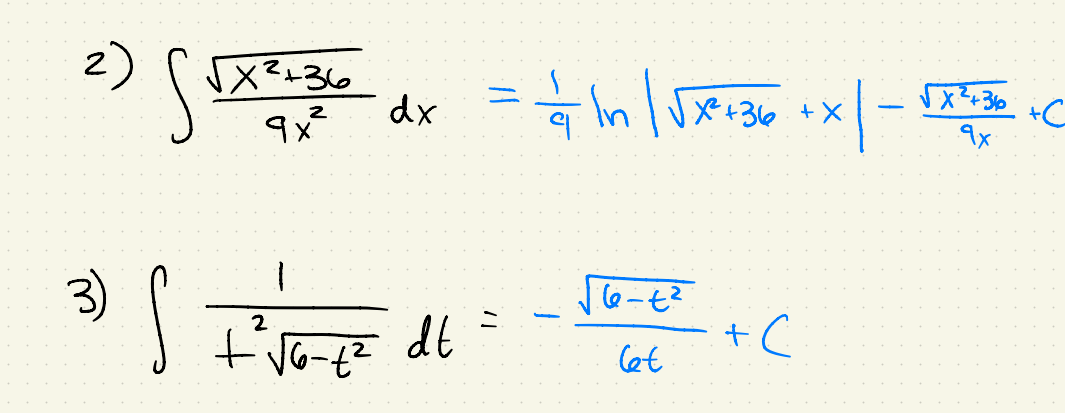 2) ∫ √(x²+36) / 9x² dx = 1/9 ln |√(x²+36) + x| − √(x²+36) / 9x + C
3) ∫ 1 / t²√(6−t²) dt = − √(6−t²) / 6t + C